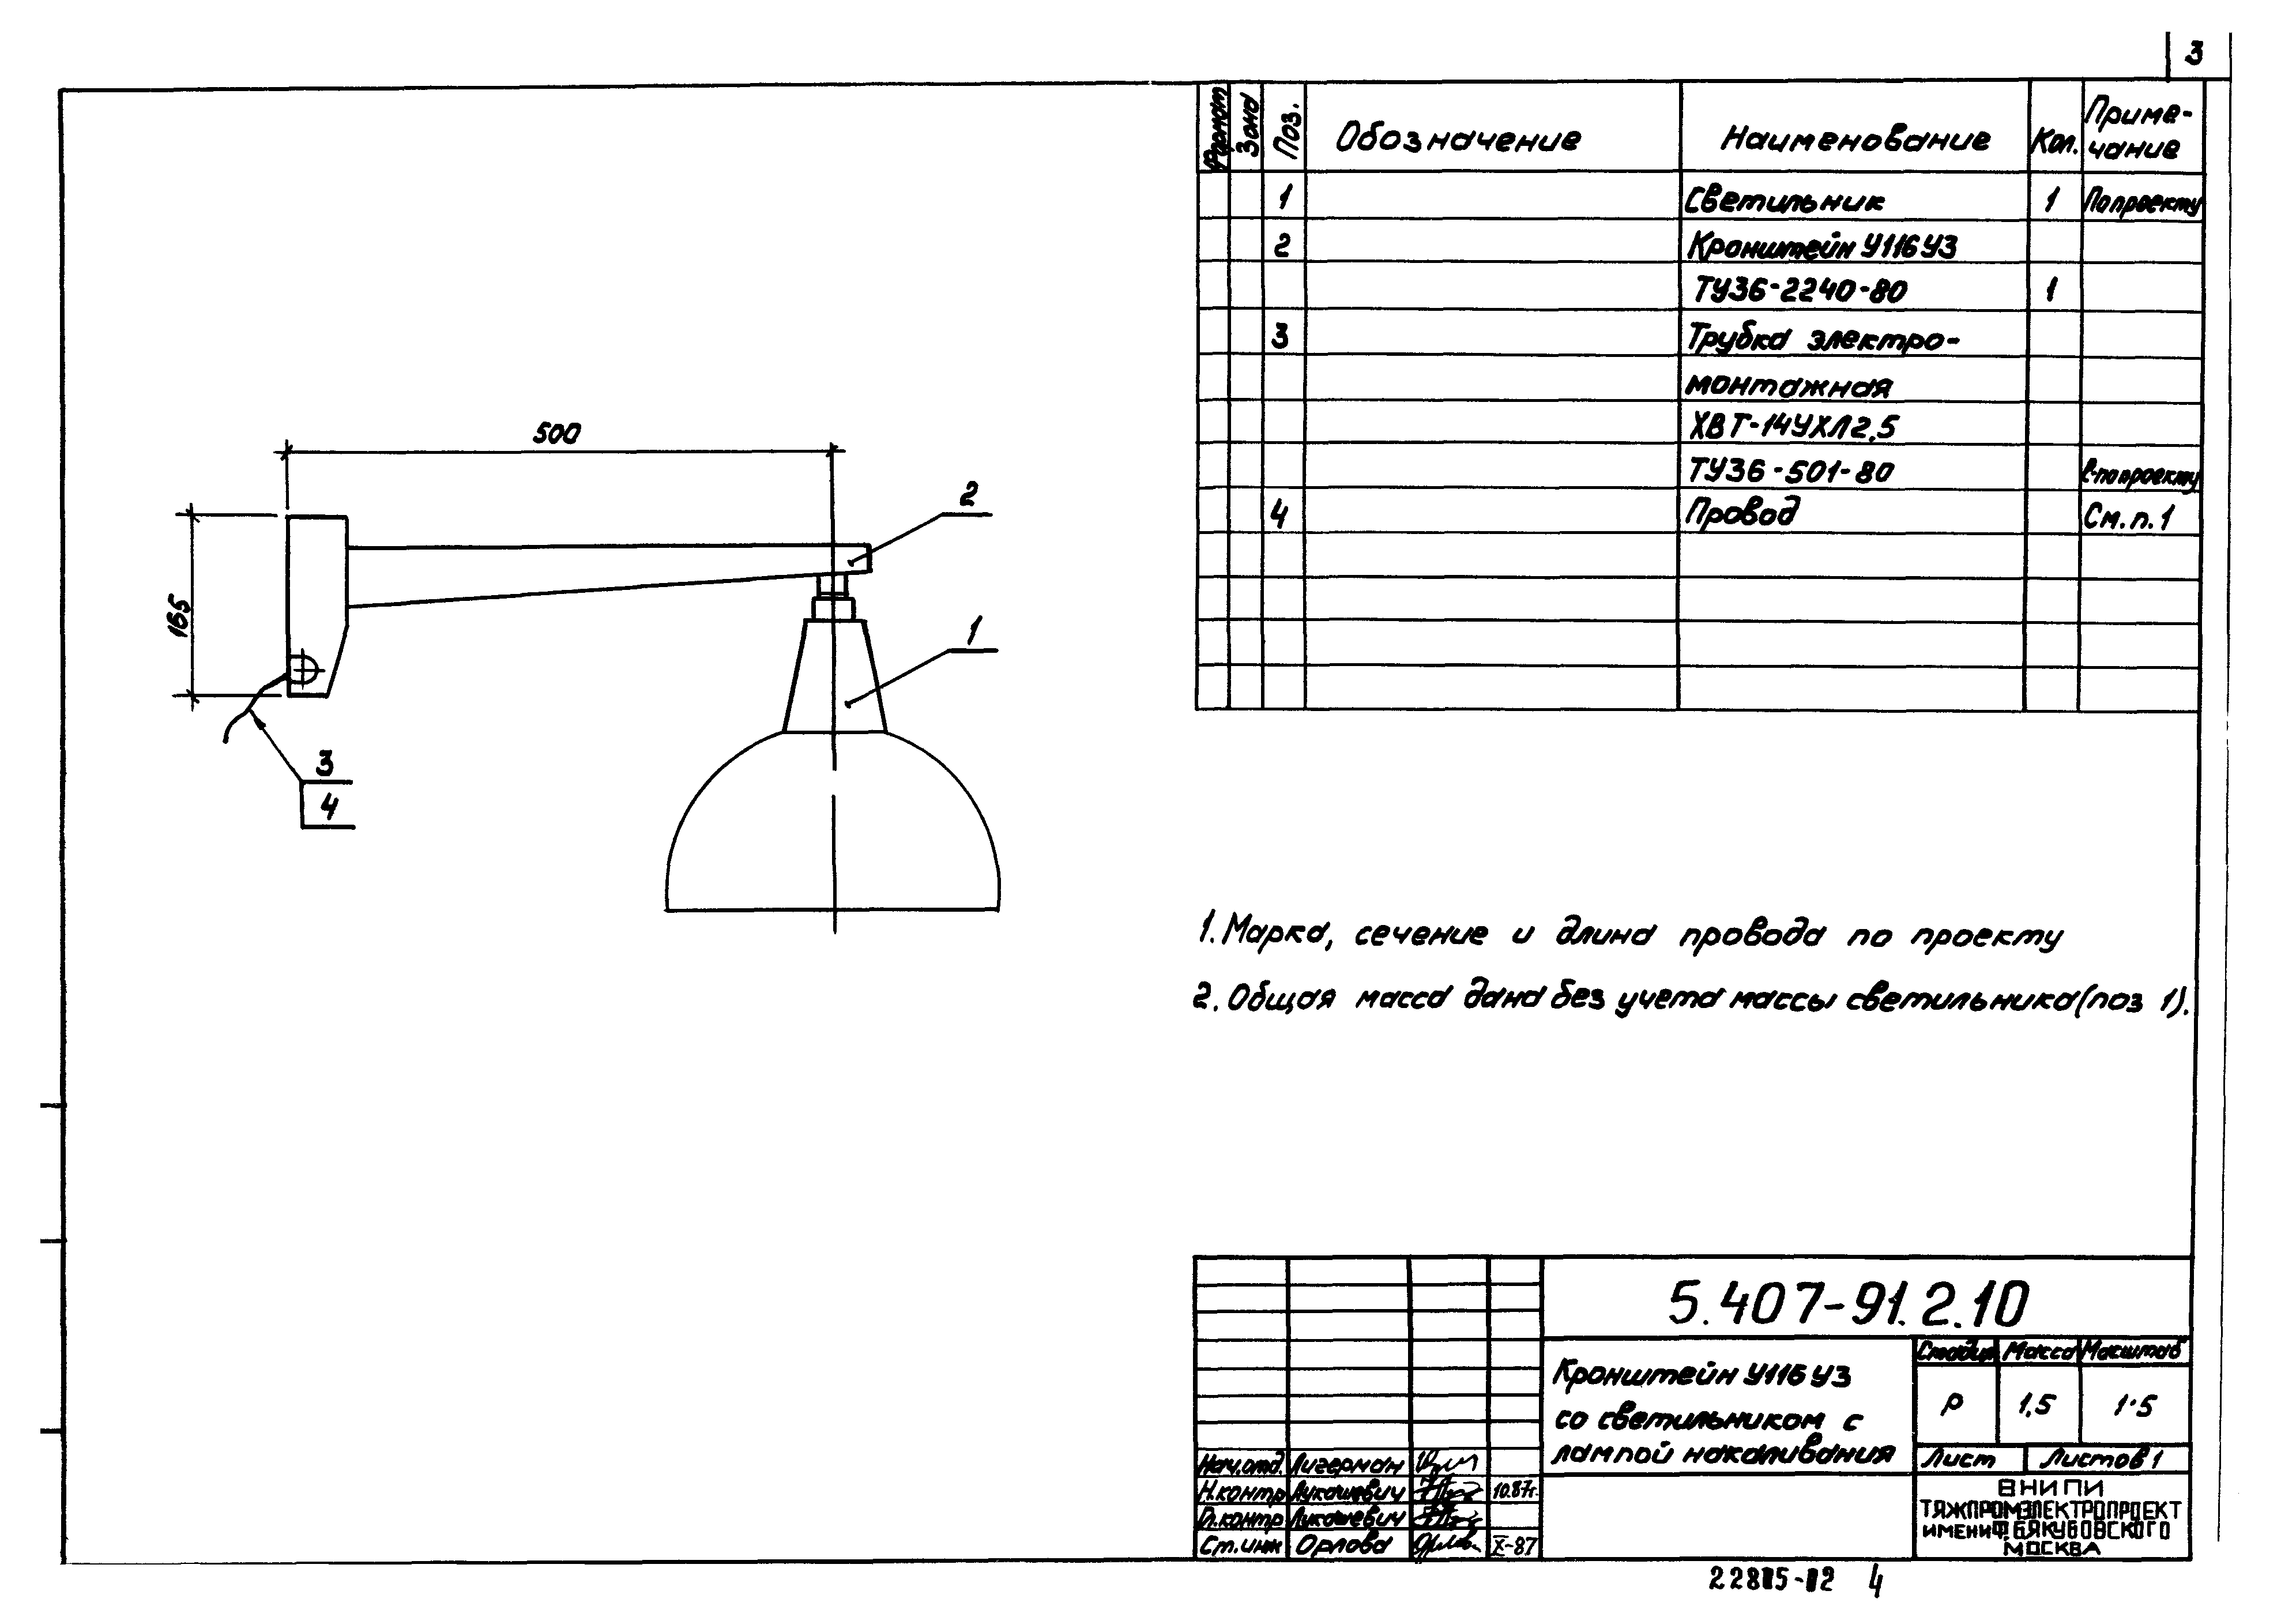 3
Формат Зона Поз. Обозначение Наименование Кол. Приме-
чание
1 Светильник 1 По проекту
2 Кронштейн У116У3
ТУ36-2240-80 1
3 Трубка электро-
монтажная
ХВТ-14УХЛ2,5
ТУ36-501-80 ℓ-по проекту
4 Провод См.п.1
500
165
2
1
3
4
1. Марка, сечение и длина провода по проекту
2. Общая масса дана без учета массы светильника (поз 1).
5.407-91.2.10
Кронштейн У116У3
со светильником с
лампой накаливания
Стадия Масса Масштаб
Р 1,5 1:5
Лист Листов 1
Нач.отд. Лигерман
Н.контр Лукашевич 10.87г.
Гл.контр Лукашевич
Ст.инж Орлова X-87
ВНИПИ
ТЯЖПРОМЭЛЕКТРОПРОЕКТ
ИМЕНИ Ф.Б.ЯКУБОВСКОГО
МОСКВА
4